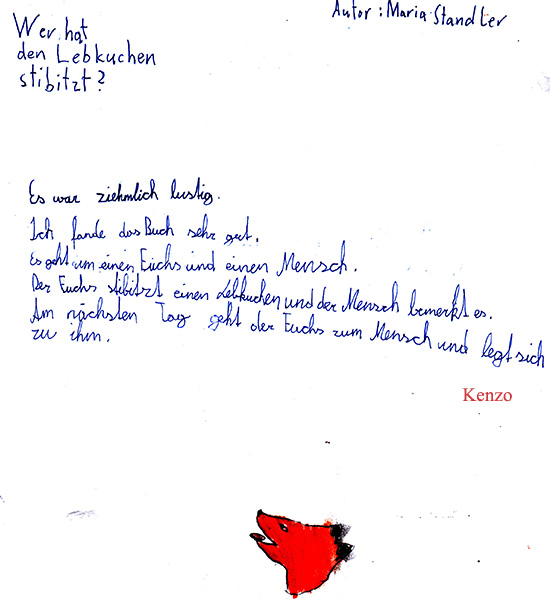 Wer hat
den Lebkuchen
stibitzt?
Autor: Maria Standler
Es war ziehmlich lustig.
Ich fande das Buch sehr gut.
Es geht um einen Fuchs und einen Mensch.
Der Fuchs stibitzt einen Lebkuchen und der Mensch bemerkt es.
Am nächsten Tag geht der Fuchs zum Mensch und legt sich
zu ihm.
Kenzo